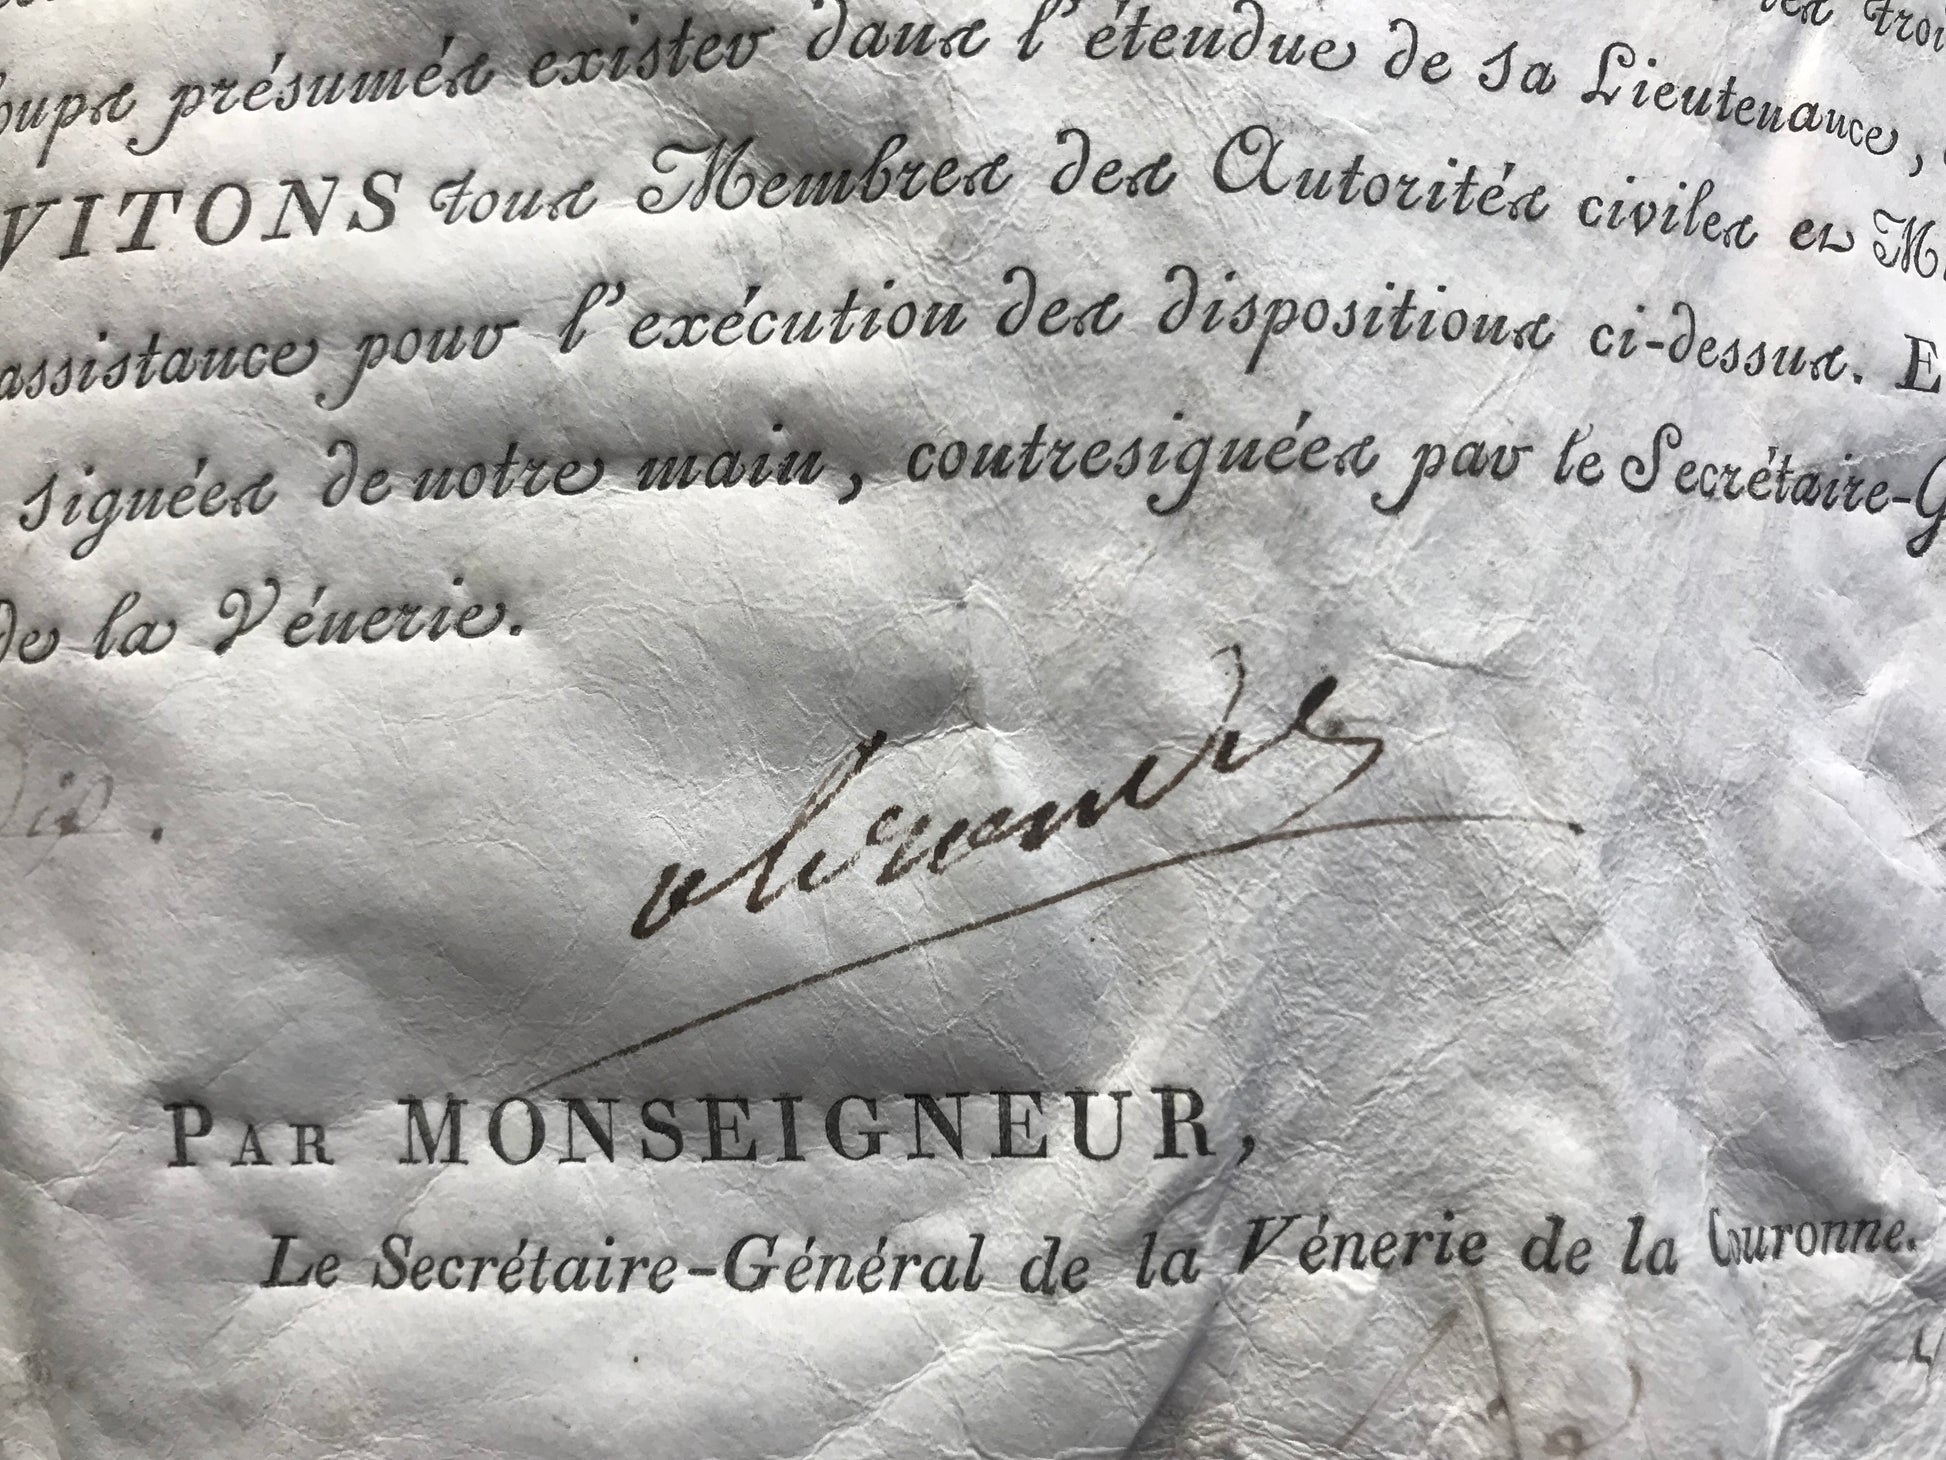 présumés exister dans l'étendue de sa Lieutenance,
VITONS tous Membres des Autorités civiles et
assistance pour l'exécution des dispositions ci-dessus. E
signées de notre main, contresignées par le Secrétaire-G
de la Vénerie.
Alexandre
PAR MONSEIGNEUR,
Le Secrétaire-Général de la Vénerie de la Couronne.